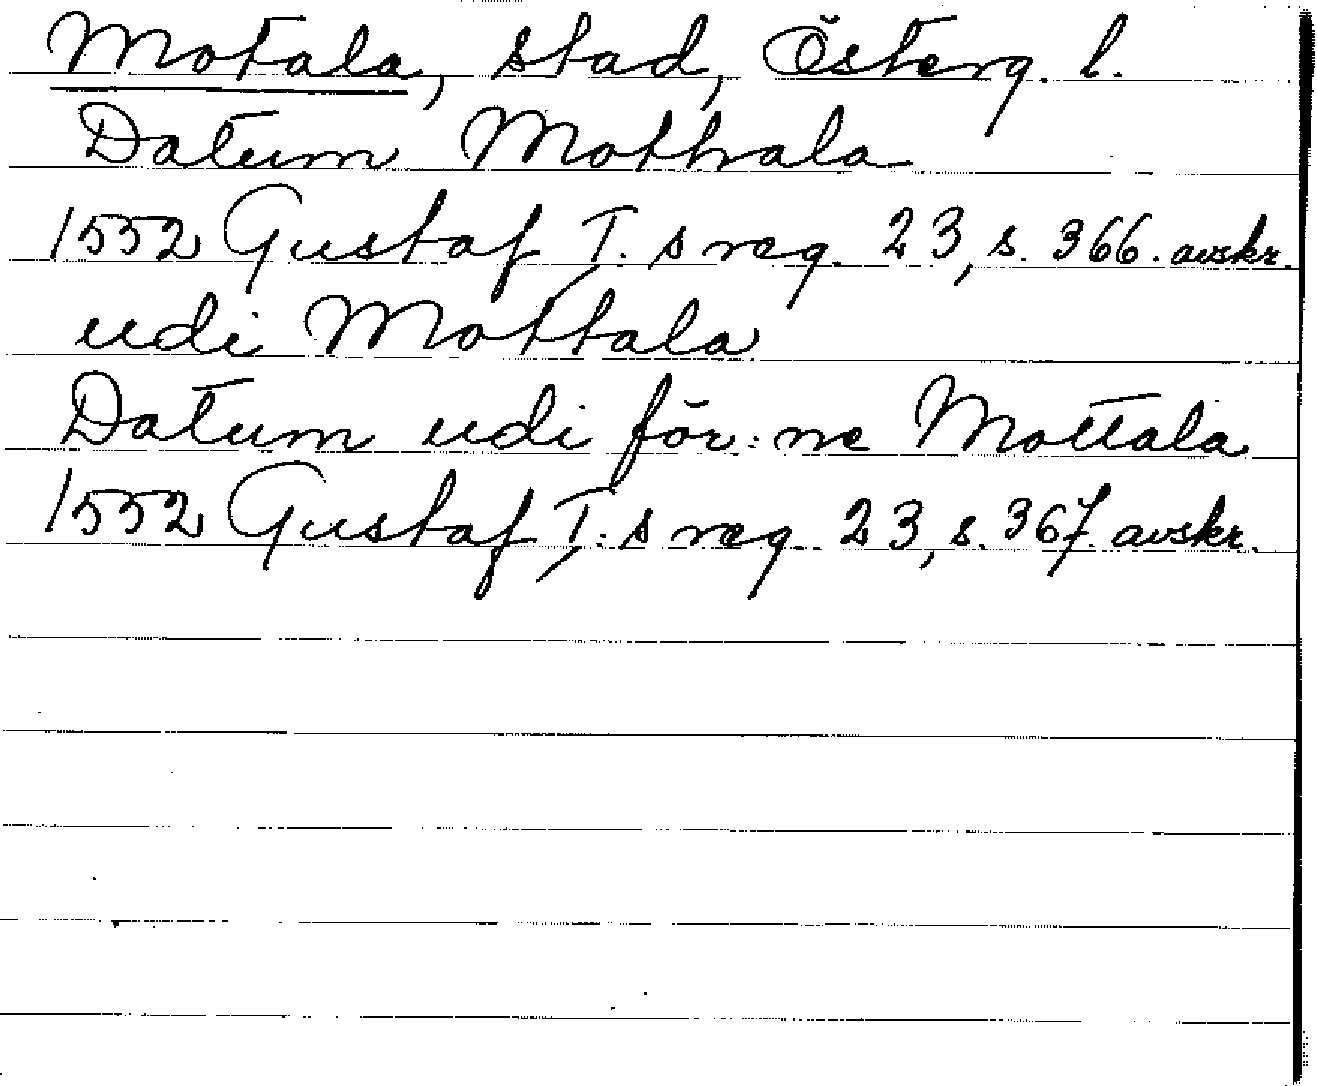 Motala, stad, Österg. l.
Datum Mothala
1552 Gustaf I. s reg. 23, s. 366. avskr.
udi Mottala
Datum udi för:ne Mottala
1552 Gustaf I. s reg. 23, s. 367. avskr.